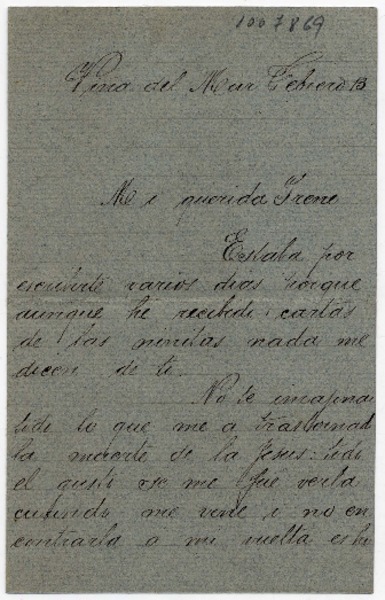 1007869
Viña del Mar Febrero 13
Mi querida Irene
Estaba por
escribirte varios dias porque
aunque he recibido cartas
de las niñitas nada me
dicen de ti.
No te imajinas
todo lo que me a trastornado
la muerte de la Jesus: todo
el gusto se me fué verla
cuando me vine i no en
contrarla a mi vuelta es lo